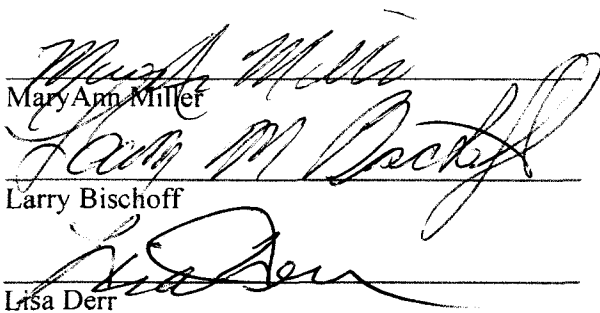 MaryAnn Miller
MaryAnn Miller
Larry M Bischoff
Larry Bischoff
Lisa Derr
Lisa Derr